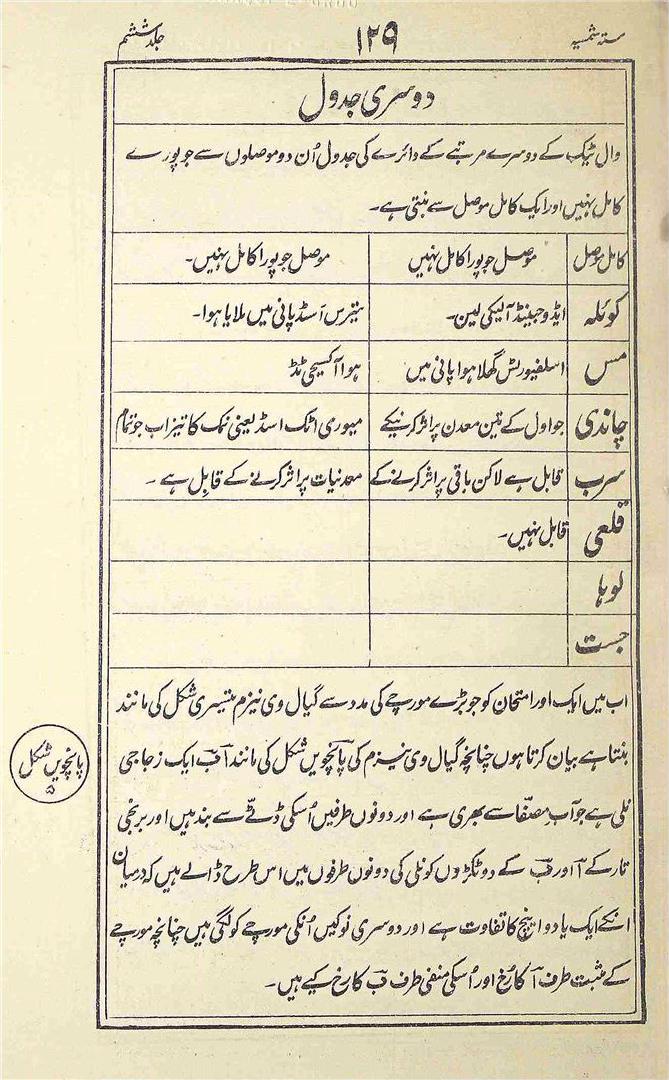 ستہ شمسیہ ۱۲۹ جلد ششم
دوسری جدول
وال ٹیک کے دوسرے مرتبے کے دائرے کی جدول اُن دو موصلوں سے جو پورے
کامل نہیں اور ایک کامل موصل سے بنتی ہے۔
کامل موصل موصل جو پورا کامل نہیں موصل جو پورا کامل نہیں۔
کوئلہ ایڈوجینیڈ آلیکی لین۔ نیترس اَسڈ پانی میں ملایا ہوا۔
مس اسلفیورٹس گھلا ہوا پانی میں ہوا آکسیجی نٹڈ
چاندی جو اول کے تین معدن پر اثر کرنیکے میوری اٹک اسڈ یعنی نمک کا تیزاب جو تمام
سرب قابل ہے لاکن باقی پر اثر کرنے کے معدنیات پر اثر کرنے کے قابل ہے۔
قلعی قابل نہیں۔
لوہا
جست
اب میں ایک اور امتحان کو جو بڑے مورچے کی مدد سے گیال وی نیزم تیسری شکل کی مانند
بنتا ہے بیان کرتا ہوں چنانچہ گیال وی نیزم کی پانچویں شکل کی مانند آب ایک زجاجی
نلی ہے جو آب مصفّا سے بھری ہے اور دونوں طرفیں اُسکی ڈٹے سے بند ہیں اور برنجی
تار کے آ اور ب کے دو ٹکڑوں کو نلی کی دونوں طرفوں میں اس طرح ڈالے ہیں کہ درمیان
انکے ایک یا دو اینچ کا تفاوت ہے اور دوسری نوکیں اُنکی مورچے کو لگی ہیں چنانچہ مورچے
کے مثبت طرف آ کا رُخ اور اُسکی منفی طرف ب کا رخ کیے ہیں۔
پانچویں شکل
۵